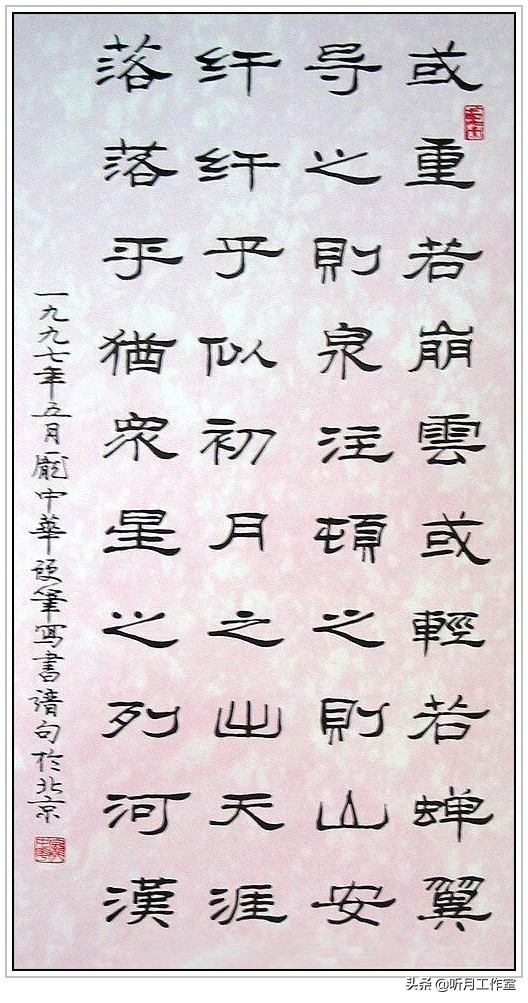 或重若崩雲或輕若蝉翼
导之則泉注頓之則山安
纤纤乎似初月之出天涯
落落乎猶衆星之列河漢
一九九七年五月龐中華硬筆寫書譜句於北京
头条 @听月工作室